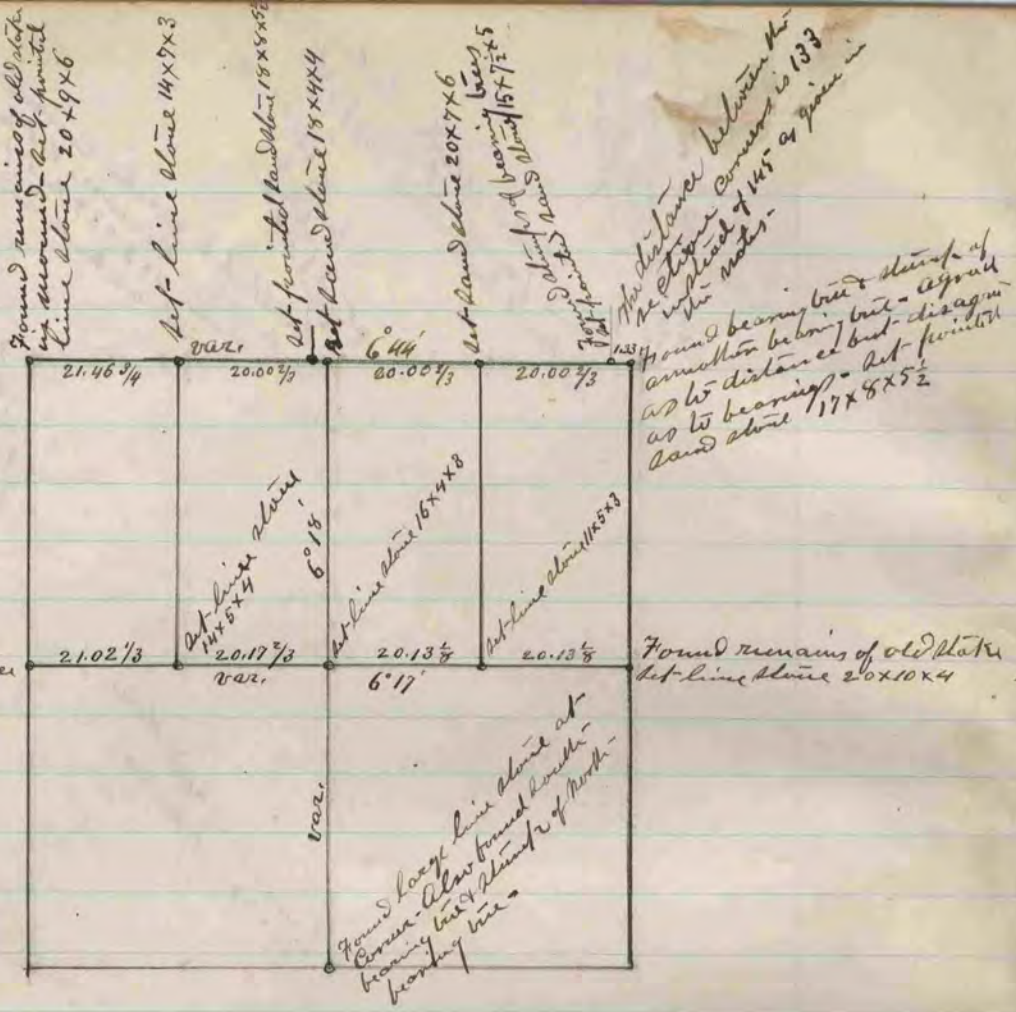 Found remains of old stake
in mound - set pointed
lime stone 20x9x6
set lime stone 14x7x3
set pointed sand stone 18x8x5½
set sand stone 18x4x4
set sand stone 20x7x6
Found stumps of bearing trees
set pointed sand stone 15x7½x5
The distance between the
section corners is 133
instead of 145 as given in
the notes -
Found bearing tree & stump of
another bearing tree - agreed
as to distance but disagree
as to bearings - set pointed
sand stone 17x8x5½
var. 6°44'
21.46 3/4 20.00 2/3 20.00 2/3 20.00 2/3 1.33
set lime stone
14x5x4
6°18'
set lime stone 16x4x8
set lime stone 11x5x3
21.02 1/3 20.17 2/3 20.13 1/8 20.13 1/8
var. 6°17'
Found remains of old stake
set lime stone 20x10x4
var.
Found large lime stone at
Corner - Also found south
bearing tree & stump of north
bearing tree -